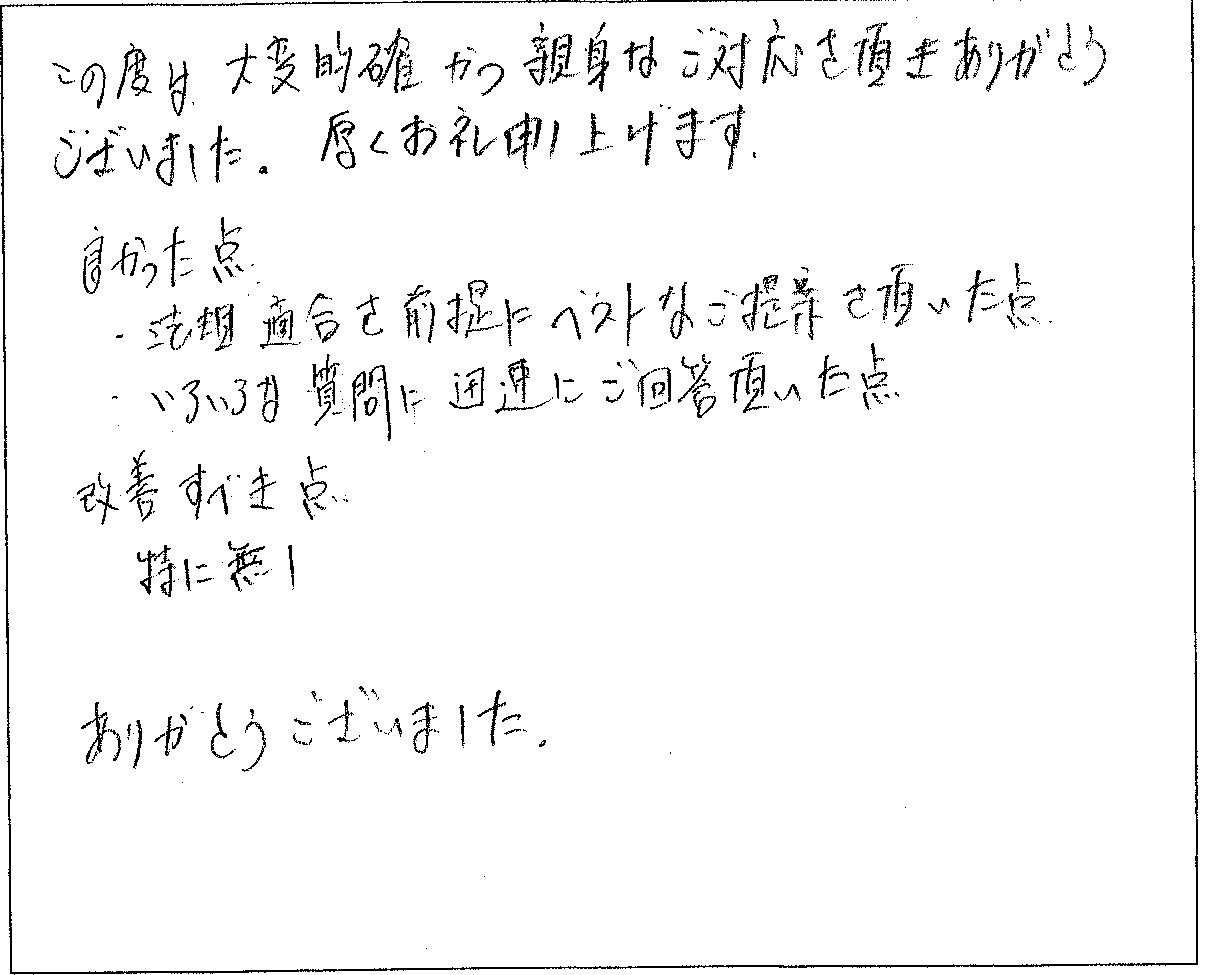 この度は、大変的確かつ親身なご対応を頂きありがとう
ございました。厚くお礼申し上げます。
良かった点
・法規適合を前提にベストなご提案を頂いた点
・いろいろな質問に迅速にご回答頂いた点
改善すべき点
特に無し
ありがとうございました。